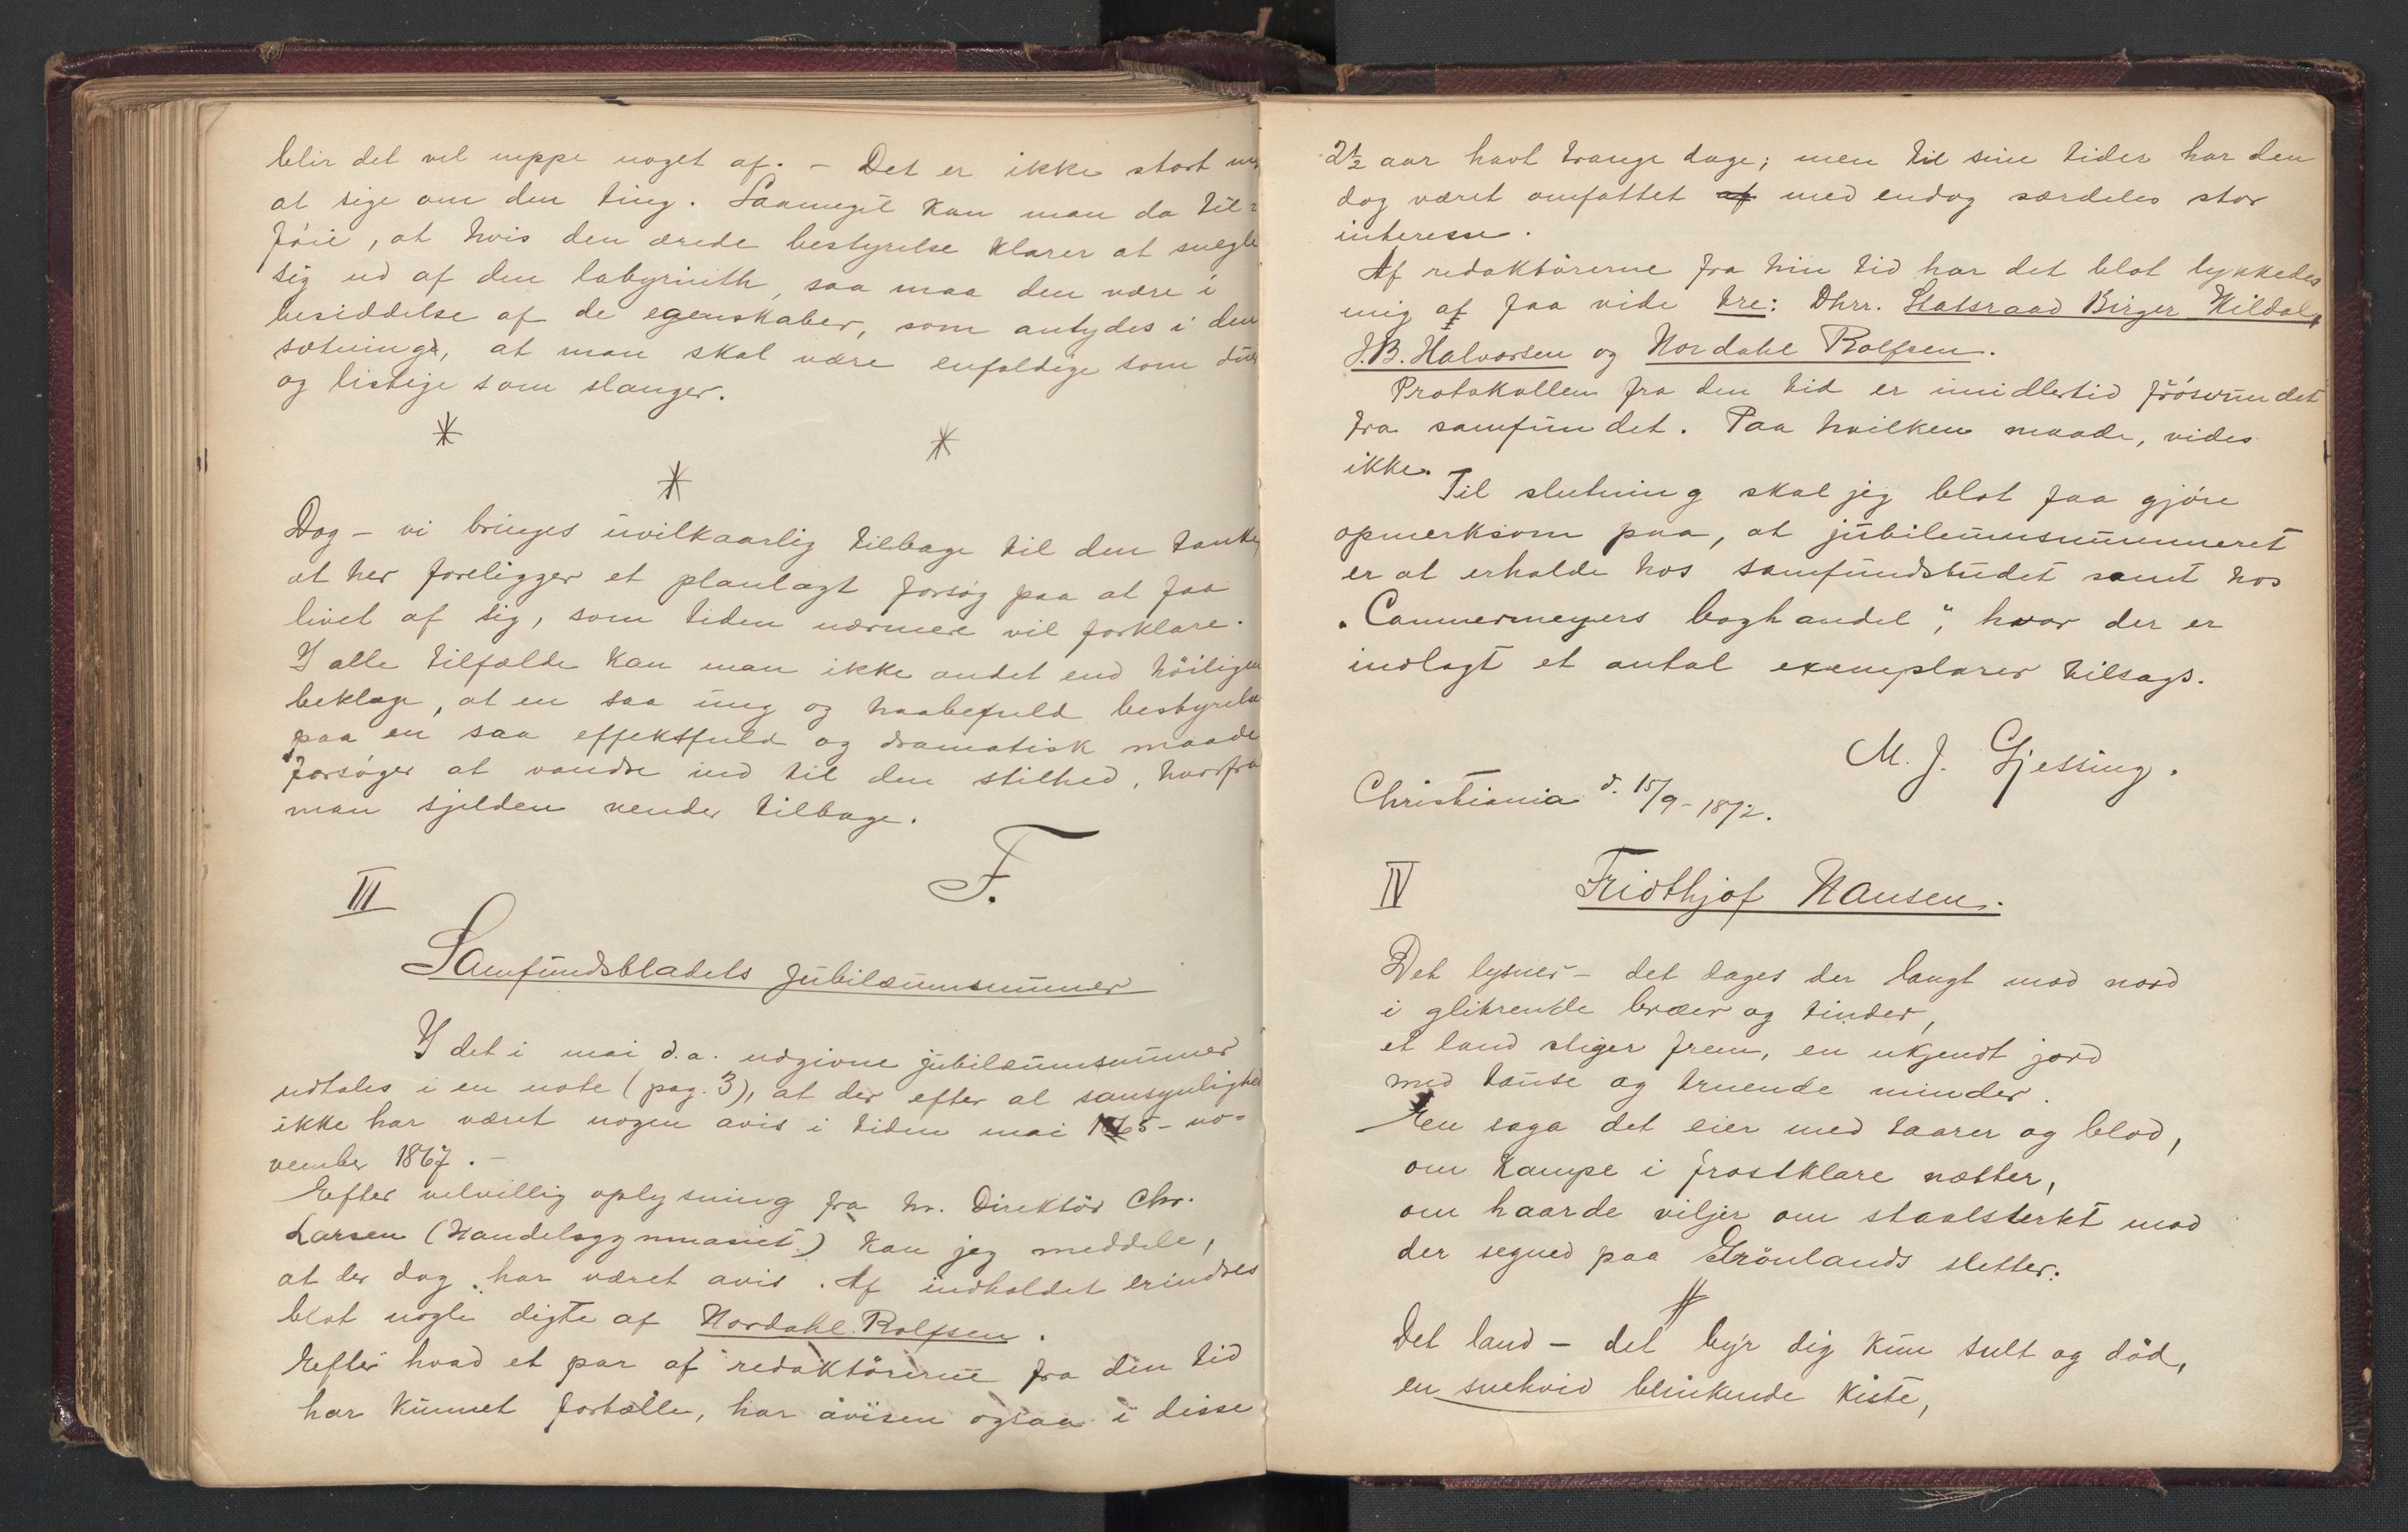 blir det vel neppe noget af. – Det er ikke stort
at sige om den ting. Saameget kan man da til=
føie, at hvis den ærede bestyrelse klarer at snegle
sig ud af den labyrinth, saa maa den være i
besiddelse af de egenskaber, som antydes i den
sætning, at man skal være enfoldige som
og listige som slanger.
* * *
Dog – vi bringes uvilkaarlig tilbage til den tanke
at her foreligger et planlagt forsøg paa at faa
livet af sig, som tiden nærmere vil forklare.
I alle tilfælde kan man ikke andet end höiligen
beklage, at en saa ung og haabefuld bestyrelse
paa en saa effektfuld og dramatisk maade
forsøger at vandre ind til den stilhed, hvorfra
man sjelden vender tilbage.
F.
III
Samfundsbladets jubilæumsnummer
I det i mai d.a. udgivne jubilæumsnummer
udtales i en note (pag. 3), at der efter al sansynlighed
ikke har været nogen avis i tiden mai 1865 – no=
vember 1867. –
Efter velvillig oplysning fra hr. Direktör Chr.
Larsen (Handelsgymnasiet) kan jeg meddele,
at der dog har været avis. Af indholdet erindres
blot nogle digte af Nordahl Rolfsen.
Efter hvad et par af redaktörerne fra den tid
har kunnet fortælle, har avisen ogsaa i disse
2½ aar havt trange dage; men til sine tider har den
dog været omfattet af med endog særdeles stor
interesse.
Af redaktörerne fra hin tid har det blot lykkedes
mig at faa vide tre: Dhrr. Statsraad Birger Kildal,
J.B. Halvorsen og Nordahl Rolfsen.
Protokollen fra den tid er imidlertid forsvundet
fra samfundet. Paa hvilken maade, vides
ikke.
Til slutning skal jeg blot faa gjöre
opmerksom paa, at jubileumsnummeret
er at erholde hos samfundsbudet samt hos
"Cammermeyers boghandel", hvor der er
indlagt et antal exemplarer tilsags.
M. J. Gjessing.
Christiania d. 15/9 – 1892.
IV Fridthjof Nansen.
Det lysner – det dages der langt mod nord
i glitrende bræer og tinder,
et land stiger frem, en ukjendt jord
med tause og truende minder.
En saga det eier med taarer og blod,
om kampe i frostklare nætter,
om haarde viljer om staalsterkt mod
der segned paa Grönlands sletter.
Det land – det byr dig kun sult og död,
en snehvid blinkende kiste,